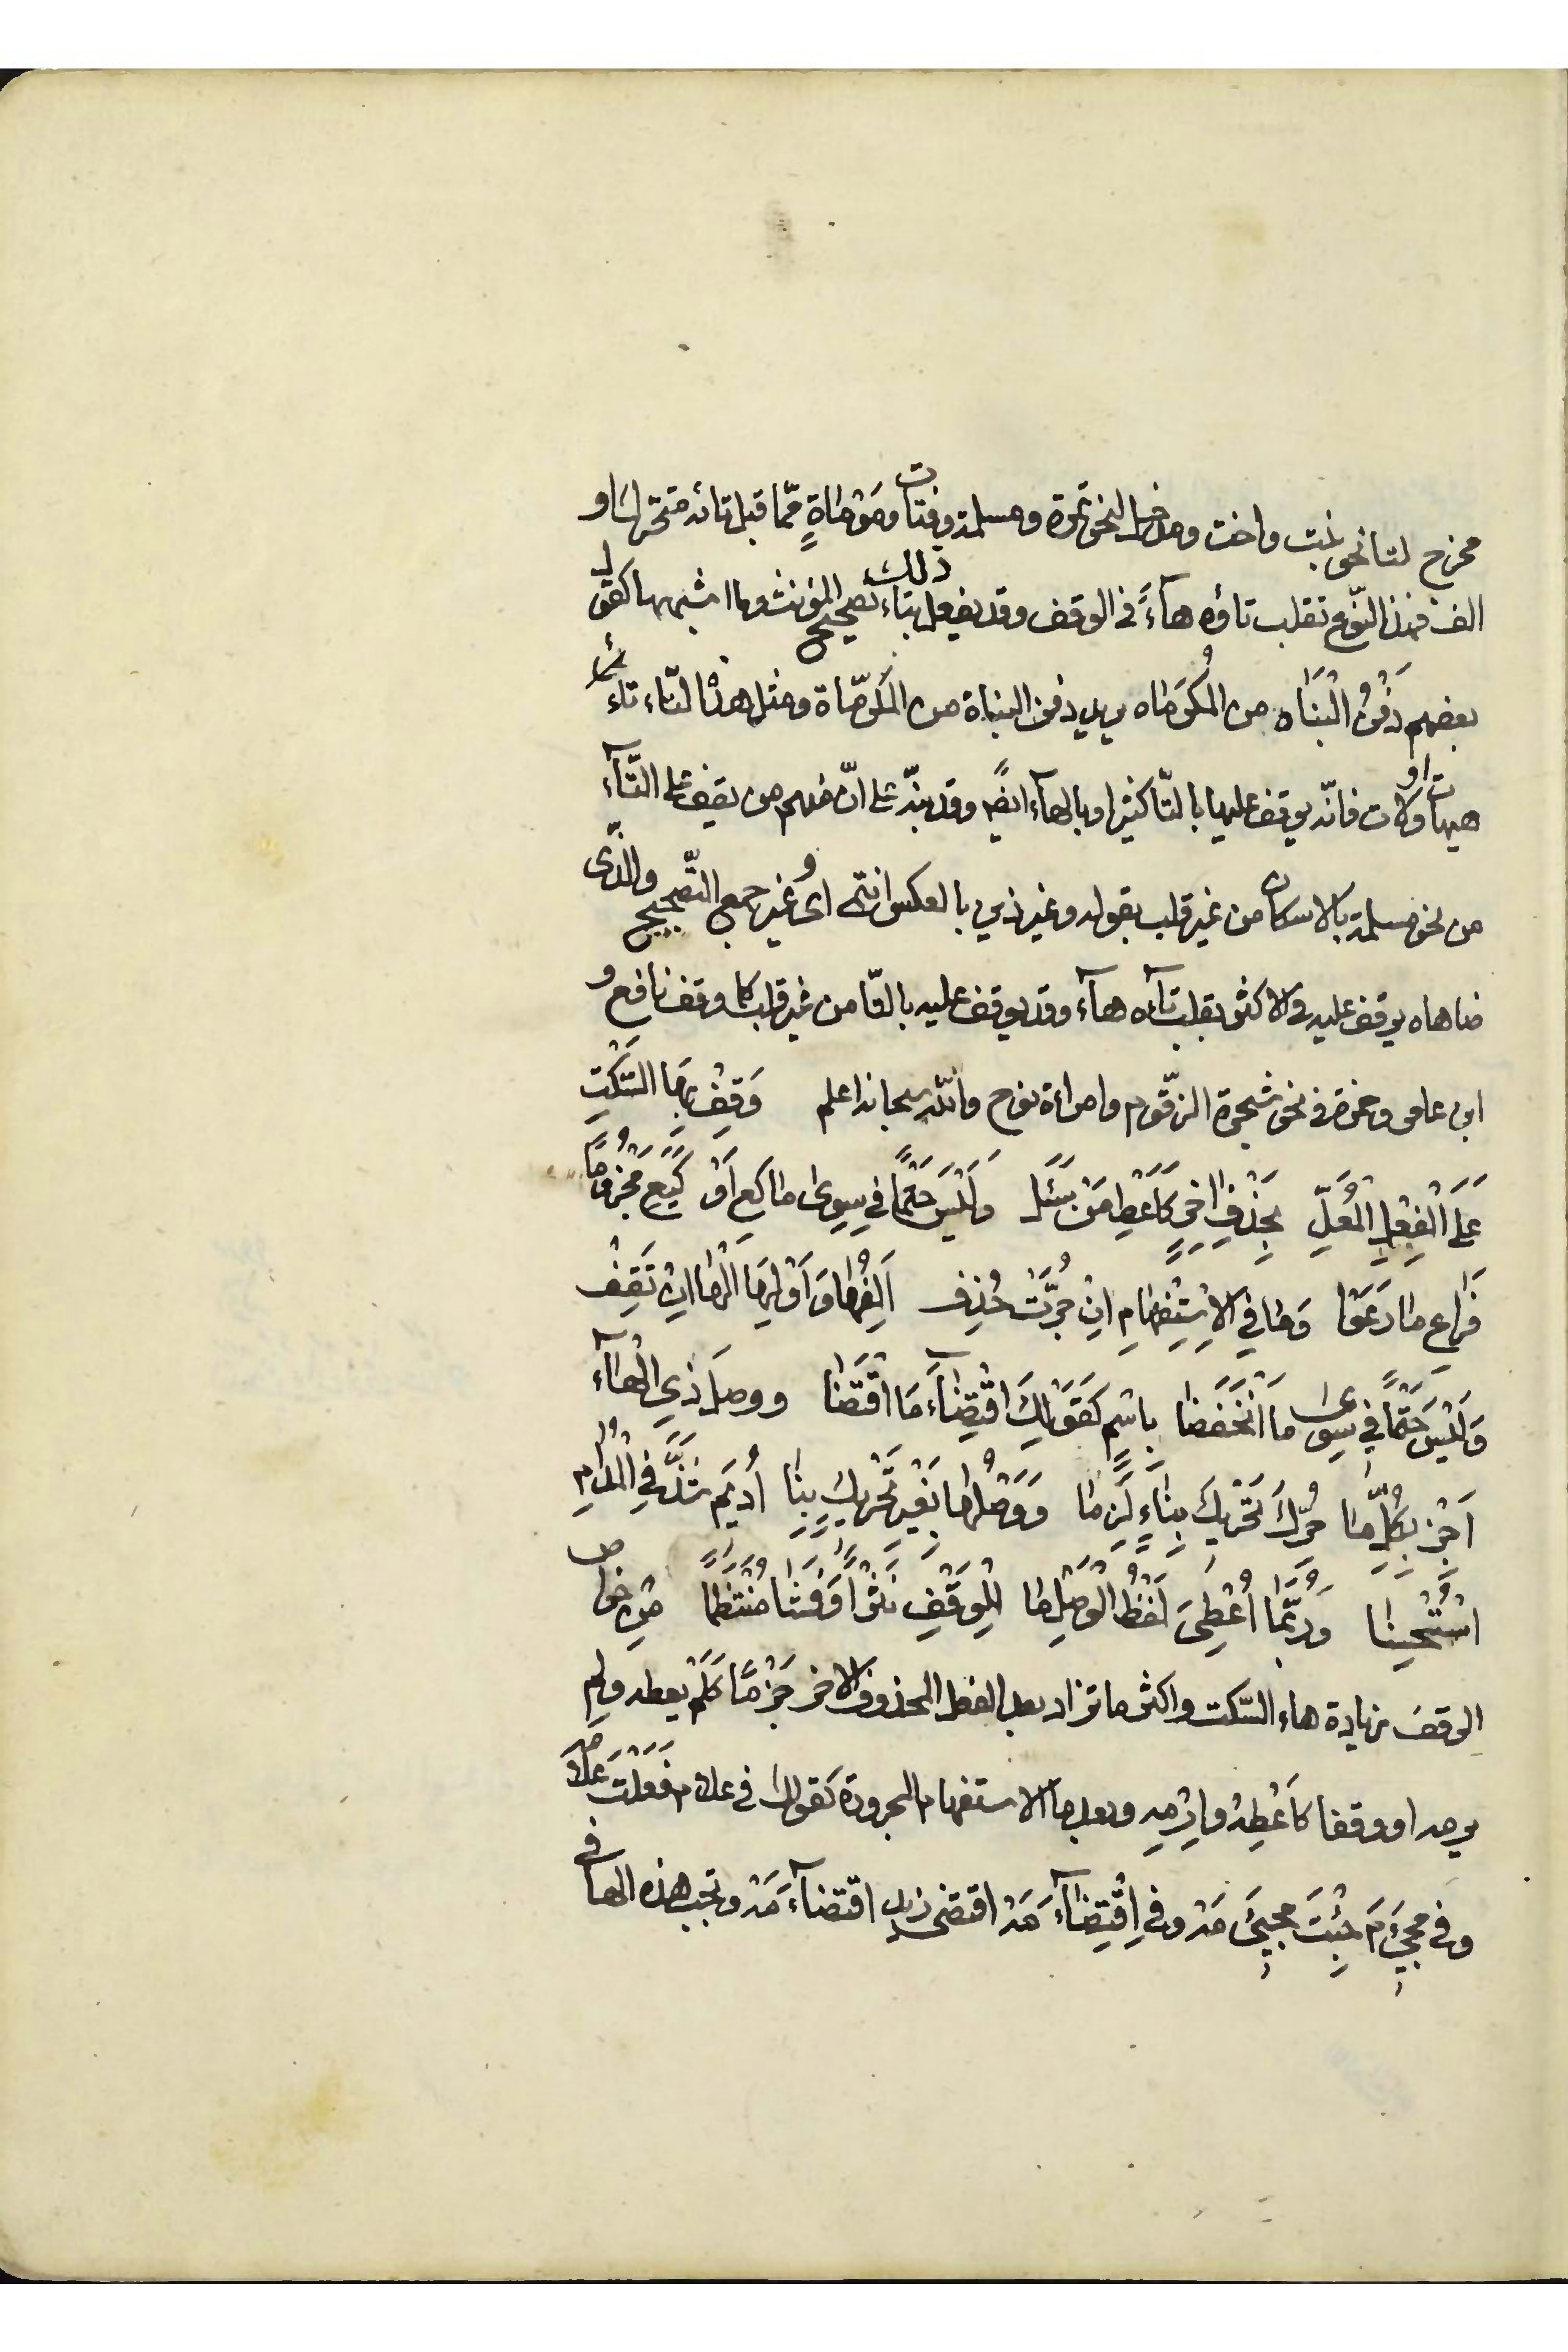 مخرج لتا نحو بنت واخت ومدخل لنحو تمرة ومسلمة وفتات وموماةٍ ممّا قبل تائه متحرّك او
الف فهذا النّوع تقلب تاؤه هآءً فى الوقف وقد يفعل ذلك بتاء تصحيح المؤنث وما اشبهها كقول
بعضهم دَفْنُ الْبَنَاه من المُكرَمَاه يريد دفن البناة من المكرمّاة ومثل هذا لتاء تاءُ
هيهات او ولات فانّه يوقف عليها بالتّا كثيرا وبالهآء ايضًا وقد نبّه على انّ منهم من يقف على التّآء
من نحو مسلمة بالاسكان من غير قلب بقوله وغير ذين بالعكس انتمى اى وغير جمع التّصحيح والّذى
ضاهاه يوقف عليه فى الاكثر بقلب تآئه هآء وقد يوقف عليه بالتّا من غير قلب كما وقف نافع و
ابن عامر وحمزة فى نحو شجرة الزّقّوم وامرأة نوح واللّه سبحانه اعلم وَقِفْ بِهَا السَّكْتِ
عَلَى الْفِعْلِ الْمُعَلّ بِحَذْفِ اخِرٍ كَاَعْطِ مَنْ سَئَلَ وَلَيْسَ حَتْمًا فِي سِوى ما كَعِ اَوْ كَيَعِ مَجْزُومًا
فَرَاعِ مَا رَعَوْا وَمَا فِي الاِسْتِفْهَامِ اِنْ جُرَّتْ حُذِف اَلِفُهَا وَاَوْلِهَا الْهَا اِنْ تَقِفْ
وَلَيْسَ حَتْمًا فِي سِوى مَا انْخَفَضَا بِاسْمٍ كَقَوْلِكَ اقْتِضَآءَ مَا اقْتَضَى ووصلَ ذِي الْهآء
اَجِزْ بِكُلِّ مَا حُرِّكَ تَحْرِيكَ بِنَاءٍ لَزِمَا وَوَصْلُهَا بِغَيْرِ تَحْرِيكِ بِنَا اُدِيمَ شَذَّ فِي الْمُدَامِ
اسْتُحْسِنَا وَرُبَّمَا اُعْطِىَ لَفْظُ الْوَصْلِ مَا لِلْوَقْفِ نَثْرًا وَفَشَا مُنْتَظِمًا مِنْ خواص
الوقف زيادة هاء السّكت واكثر ما تزاد بعد الفعل المحذوف الاخر جَزْمًا كَلَمْ يعطه ولم
يرمه او وقفا كاَعْطِهْ وارْمِهِ وبعد ما الاستفهام المجرورة كقولك فى علام فَعَلْتَ عَلَامَه
وفى مجيءَ مَ جِئْتَ مجيئَ مَهْ وفى اِقْتِضَآءَ مَهْ اقتضى زيد اقتضآءَ مَهْ وتجب هذه الها فى